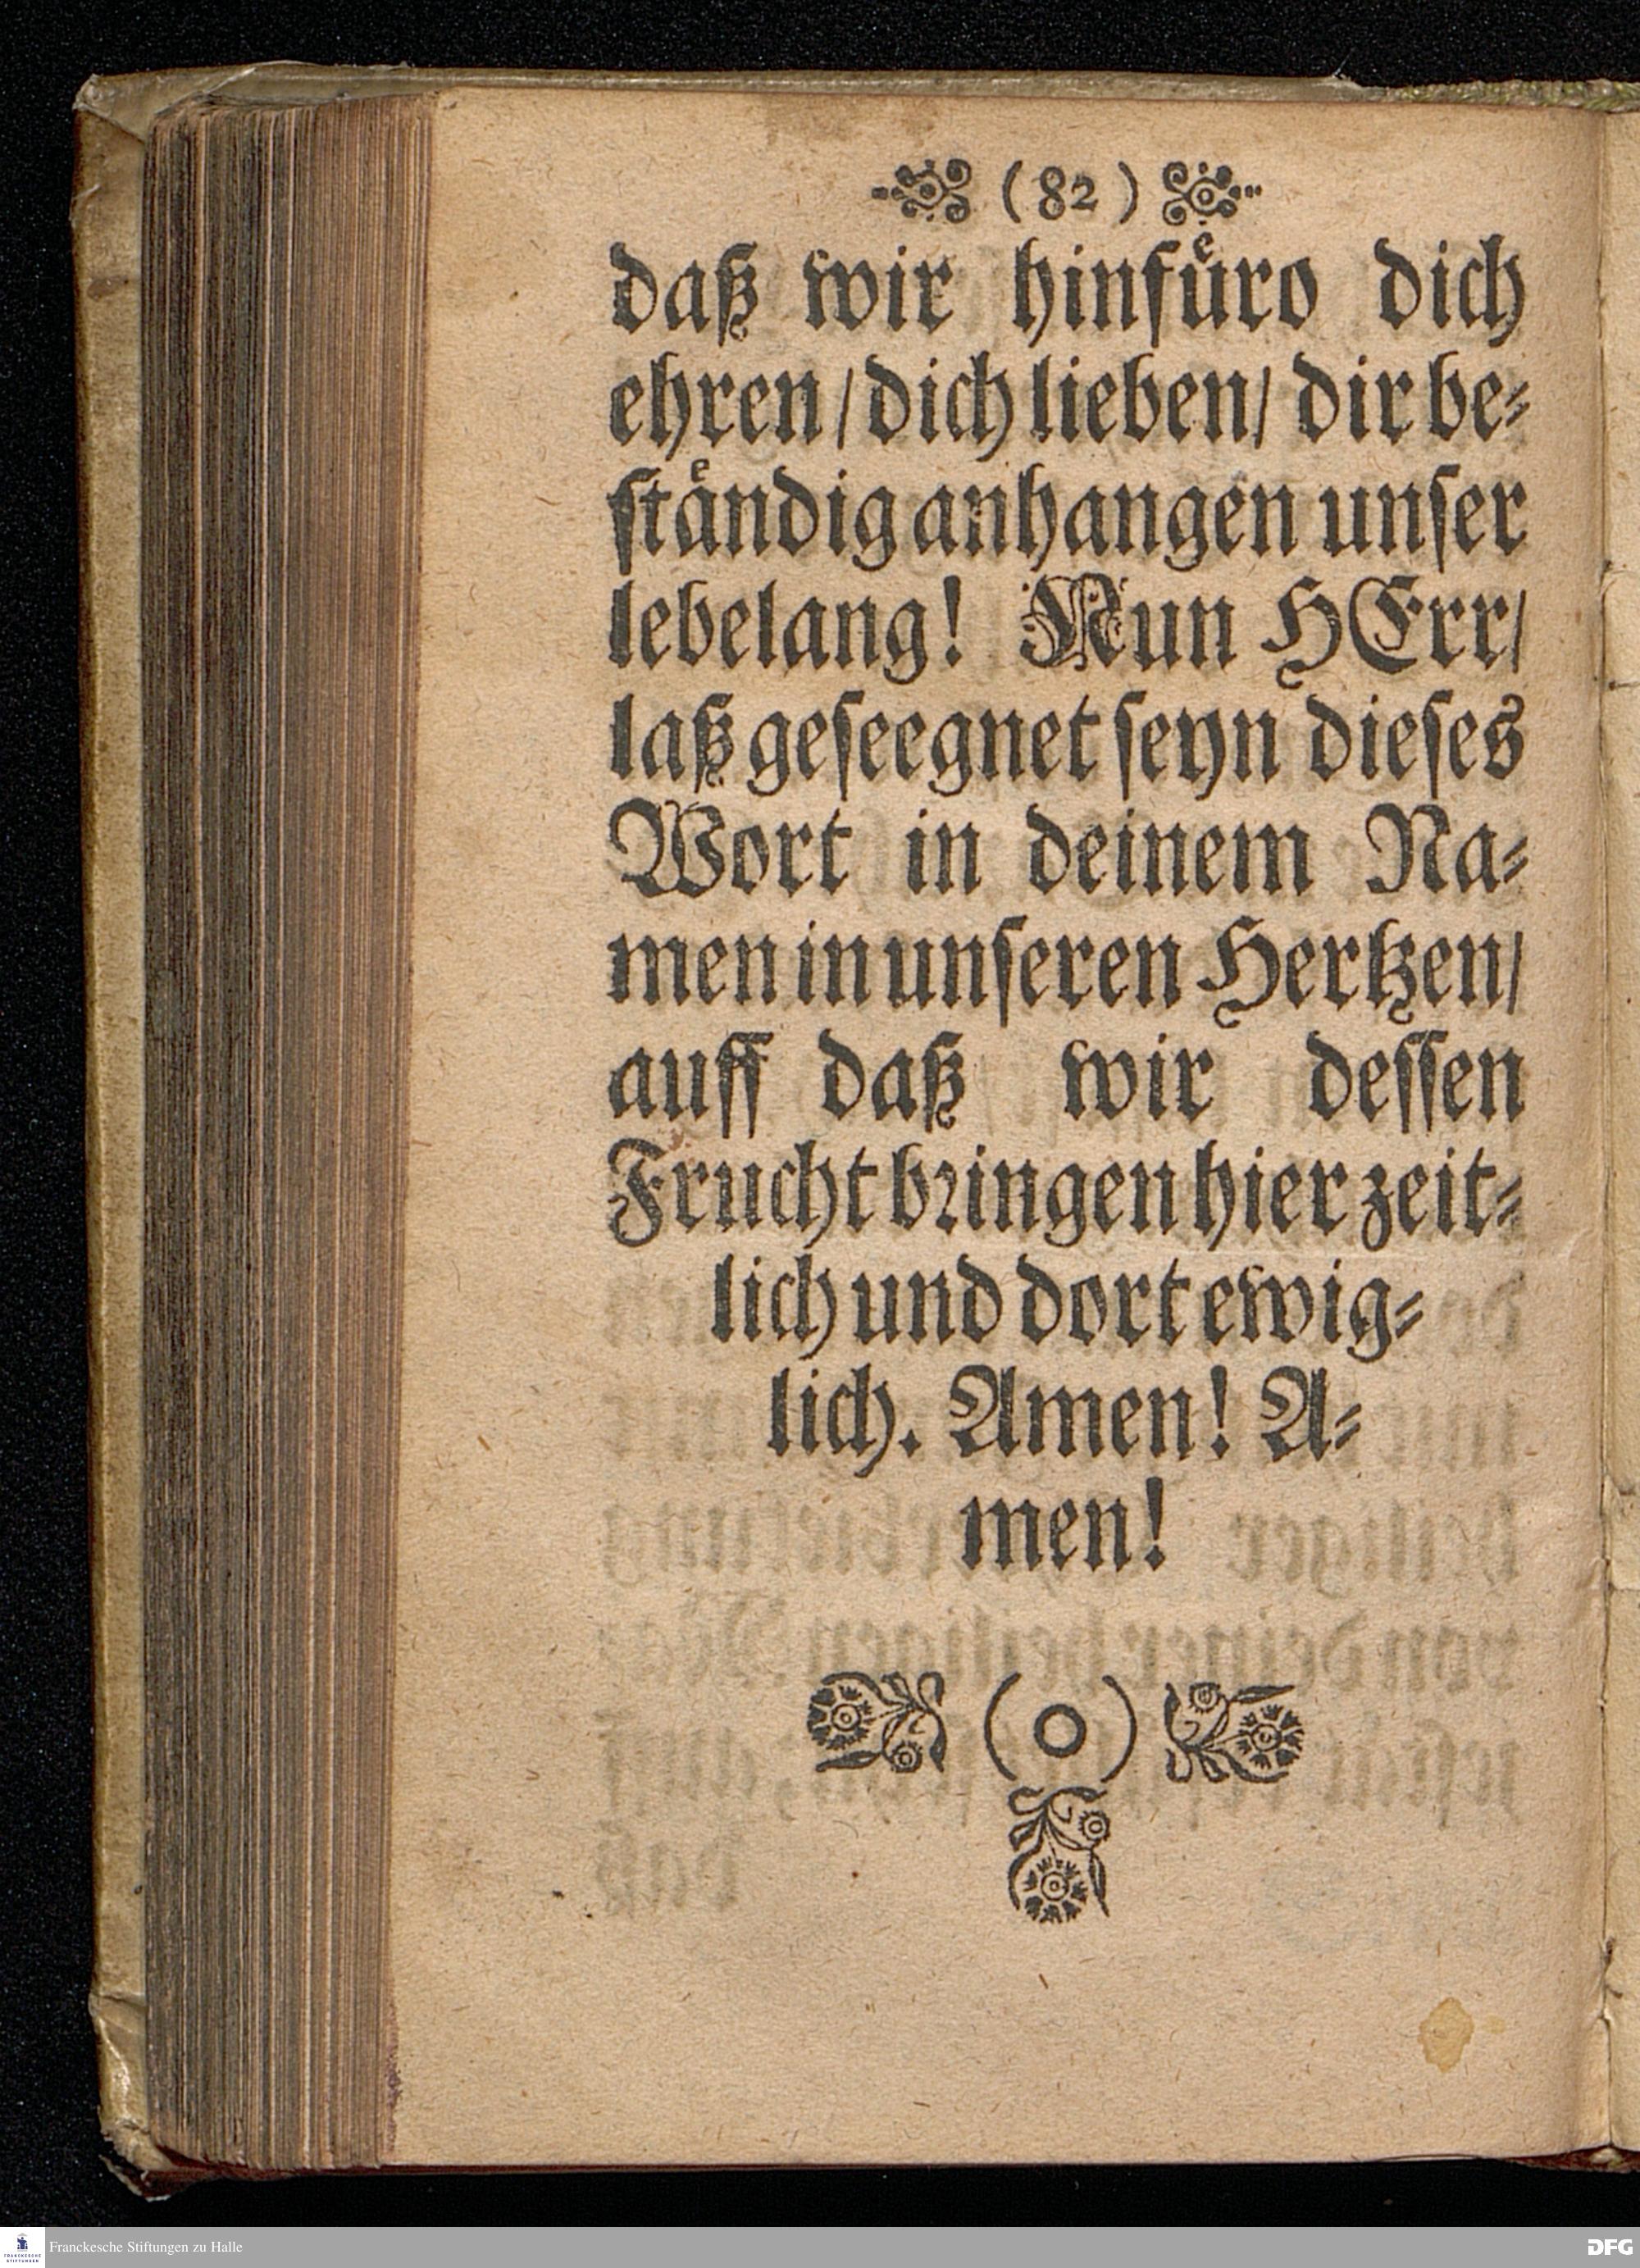 (82)
daß wir hinfuͤro dich
ehren/ dich lieben/ dir be⸗
ſtaͤndig anhangen unſer
lebelang! Nun HErr/
laß geſeegnet ſeyn dieſes
Wort in deinem Na⸗
men in unſeren Hertzen/
auff daß wir deſſen
Frucht bꝛingen hier zeit⸗
lich und dort ewig⸗
lich. Amen! A⸗
men!
(o)
FRANCKESCHE STIFTUNGEN
Franckesche Stiftungen zu Halle
DFG